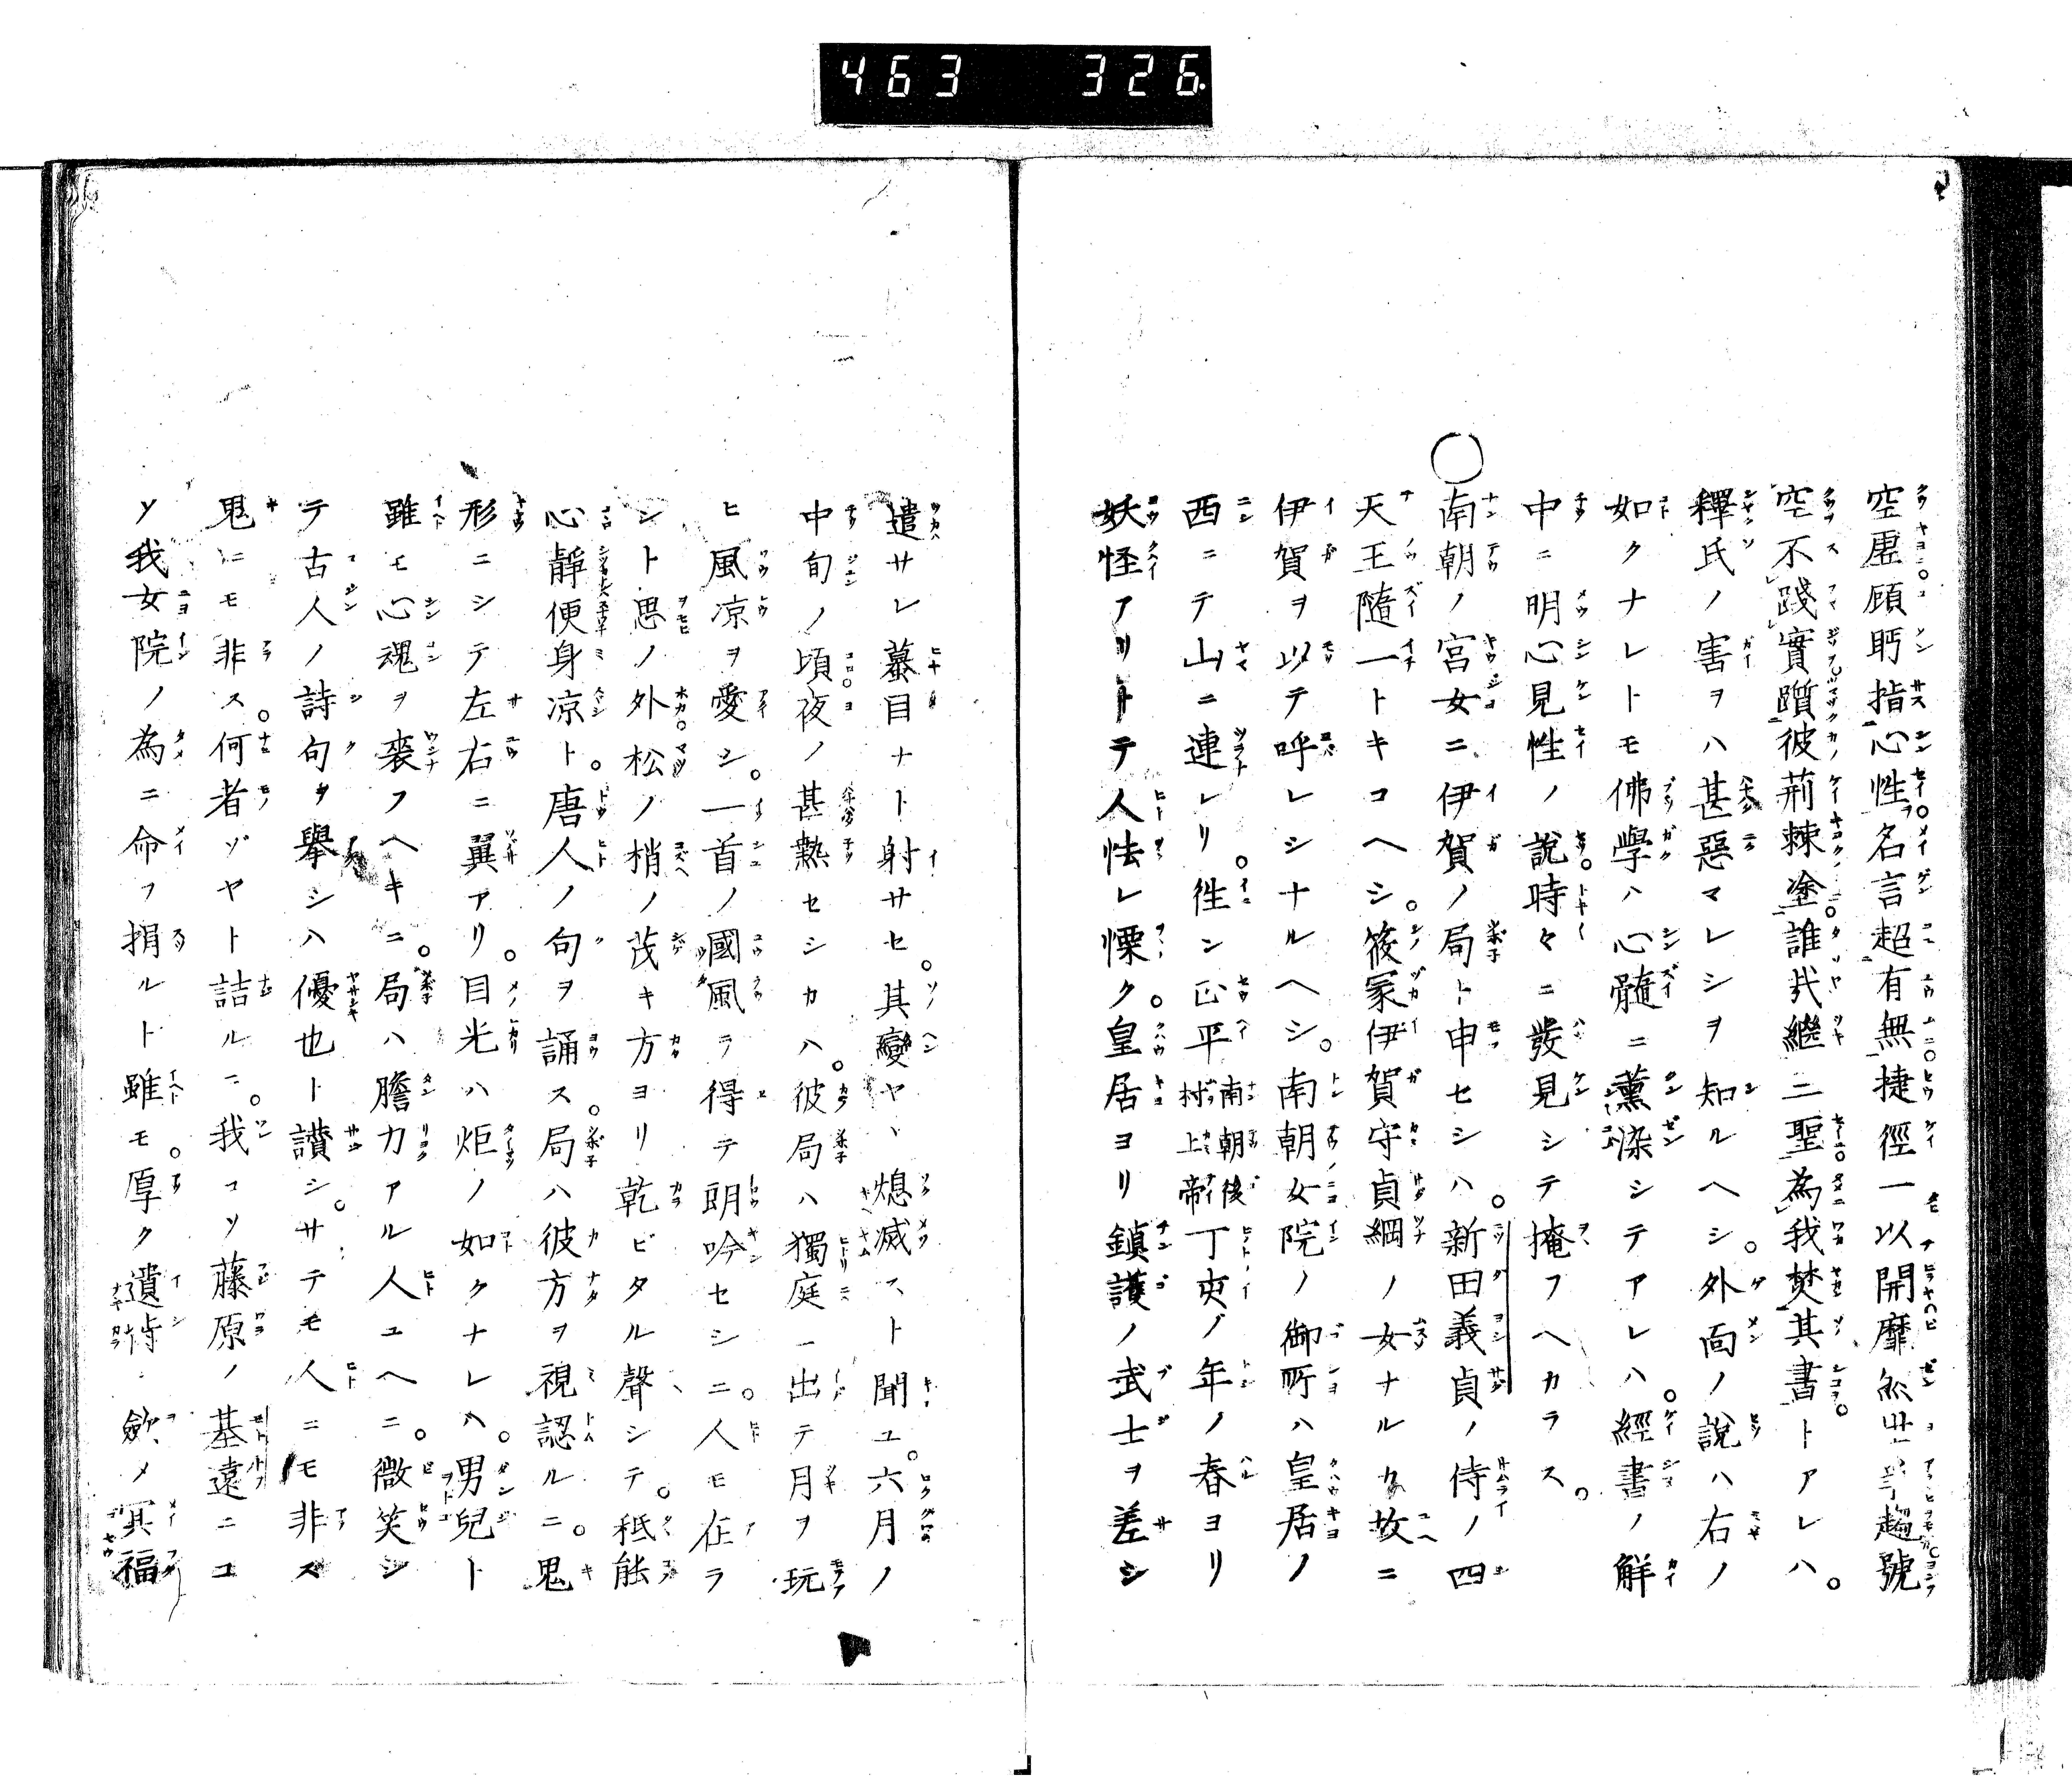 463 326
空虛顧眄指心性名言超有無捷徑一以開靡然世趨號
空不踐實躓彼荊棘塗誰哉繼三聖為我焚其書トアレハ。
釋氏ノ害ヲハ甚惡マレシヲ知ルヘシ。外面ノ說ハ右ノ
如クナレトモ佛學ハ心髓ニ薰染シテアレハ。經書ノ解
中ニ明心見性ノ說時々ニ發見シテ掩フヘカラス。
○南朝ノ宮女ニ伊賀ノ局ト申セシハ。新田義貞ノ侍ノ四
天王隨一トキコヘシ。篠冢伊賀守貞綱ノ女ナルカ故ニ
伊賀ヲ以テ呼レシナルヘシ。南朝女院ノ御所ハ皇居ノ
西ニテ山ニ連レリ。徃ン正平南朝後村上帝丁亥ノ年ノ春ヨリ
妖怪アリトテ人怯レ慄ク。皇居ヨリ鎮護ノ武士ヲ差シ
遣サレ蟇目ナト射サセ。其變ヤヽ熄滅スト聞ユ。六月ノ
中旬ノ頃夜ノ甚熱セシカハ。彼局ハ獨庭ニ出テ月ヲ玩
ヒ風凉ヲ愛シ。一首ノ國風ヲ得テ朗吟セシニ。人モ在ラ
シト思ノ外松ノ梢ノ茂キ方ヨリ乾ビタル聲シテ。秪能
心靜便身凉ト。唐人ノ句ヲ誦ス。局ハ彼方ヲ視認ルニ。鬼
形ニシテ左右ニ翼アリ。目光ハ炬ノ如クナレハ。男兒ト
雖モ心魂ヲ喪フヘキニ。局ハ膽力アル人ユヘニ。微笑シ
テ古人ノ詩句ヲ擧シハ優也ト讃シ。サテモ人ニモ非ズ
鬼ニモ非ス。何者ゾヤト詰ルニ。我コソ藤原ノ基遠ニコ
ソ我女院ノ為ニ命ヲ捐ルト雖モ。厚ク遺 歛メ冥福